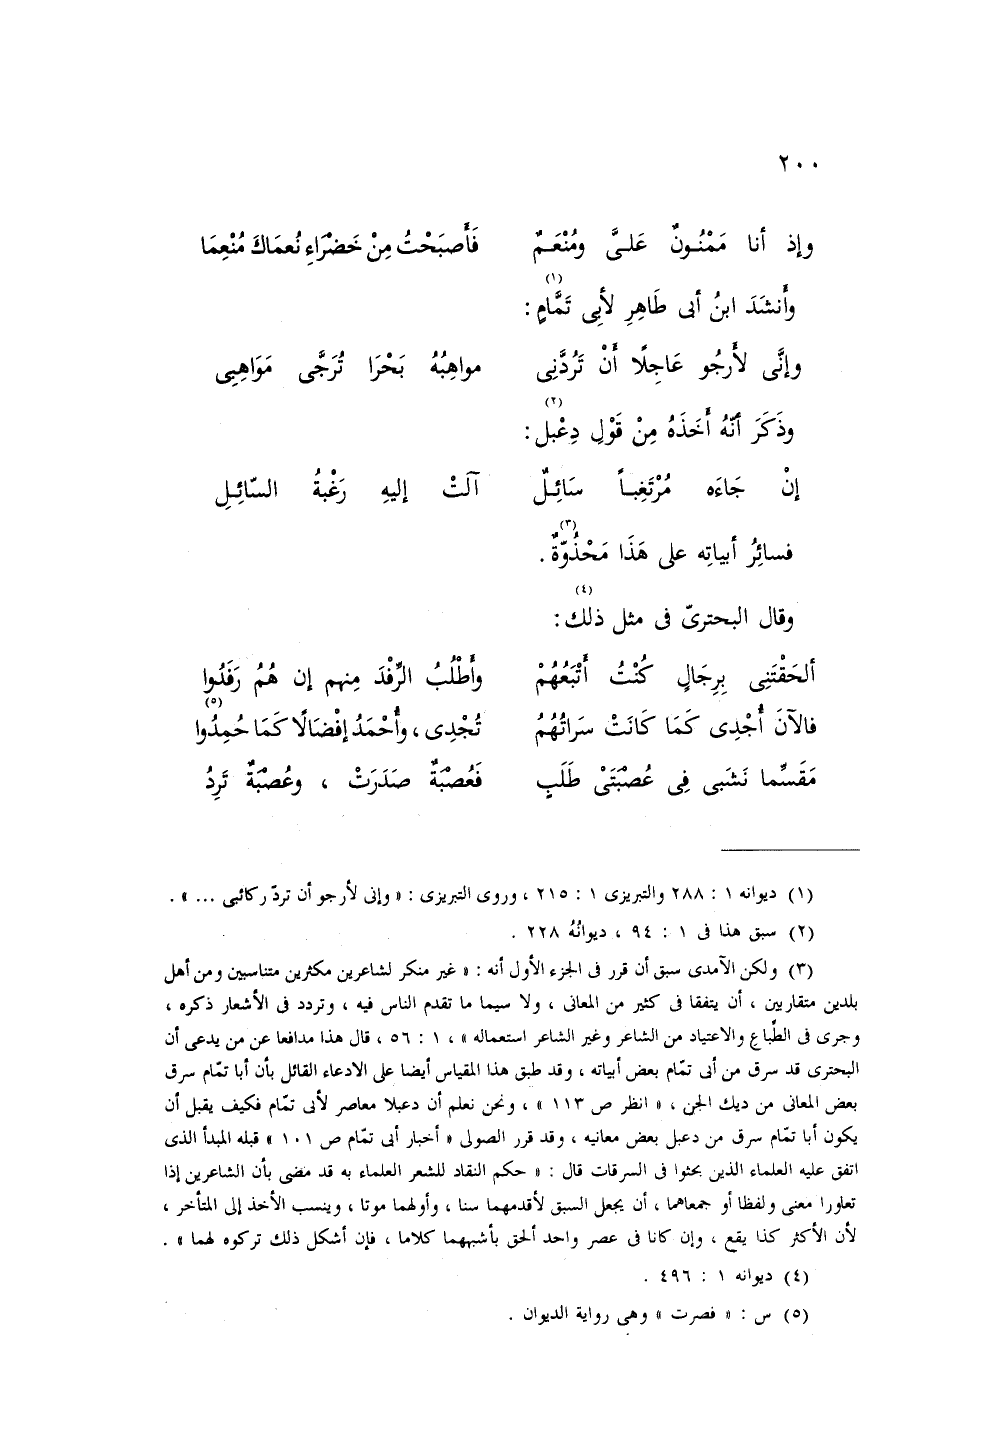 ٢٠٠
وإذ أنا مَمْنُونٌ عَلىَّ ومُنْعَمٌ فَأَصبَحْتُ مِنْ خَضْرَاءِ نُعمَاكَ مُنْعِمَا
(١)
وأَنشَدَ ابنُ أبى طَاهِرِ لأبِى تَمَّامٍ :
وإنَّى لأَرجُو عَاجِلًا أَنْ تَرُدَّنِى مواهِبُهُ بَحْرَا تُرَجَّى مَوَاهِبِى
(٢)
وذَكَرَ أنّهُ أَخَذَهُ مِنْ قَوْلِ دِعْبل :
إنْ جَاءَه مُرْتَغِبـاً سَائِلٌ آلَتْ إليهِ رَغْبةُ السّائِلِ
(٣)
فسائِرُ أبياتِه على هَذَا مَحْذُوّةٌ .
(٤)
وقال البحترىّ فى مثل ذلك :
ألحَقْتَنِى بِرِجَالٍ كُنْتُ أَتْبَعُهُمْ وأَطْلُبُ الرِّفْدَ مِنهم إن هُمُ رَفَدُوا
(٥)
فالآنَ أُجْدِى كَمَا كَانَتْ سَرَاتُهُمُ تُجْدِى ، وأُحْمَدُ إفْضَالًا كَمَا حُمِدُوا
مَقَسِّما نَشَبى فِى عُصْبَتَىْ طَلَبٍ فَعُصْبَةٌ صَدَرَتْ ، وعُصْبَةٌ تَرِدُ
(١) ديوانه ١ : ٢٨٨ والتبريزى ١ : ٢١٥ ، وروى التبريزى : « وإنى لأرجو أن تردّ ركائبى ... » .
(٢) سبق هذا فى ١ : ٩٤ ، ديوانُهُ ٢٢٨ .
(٣) ولكن الآمدى سبق أن قرر فى الجزء الأول أنه : « غير منكر لشاعرين مكثرين متناسبين ومن أهل
بلدين متقاربين ، أن يتفقا فى كثير من المعانى ، ولا سيما ما تقدم الناس فيه ، وتردد فى الأشعار ذكره ،
وجرى فى الطِّباع والاعتياد من الشاعر وغير الشاعر استعماله » ، ١ : ٥٦ ، قال هذا مدافعا عن من يدعى أن
البحترى قد سرق من أبى تمّام بعض أبياته ، وقد طبق هذا المقياس أيضا على الادعاء القائل بأن أبا تمّام سرق
بعض المعانى من ديك الجن ، « انظر ص ١١٣ » ، ونحن نعلم أن دعبلا معاصر لأبى تمّام فكيف يقبل أن
يكون أبا تمّام سرق من دعبل بعض معانيه ، وقد قرر الصولى « أخبار أبى تمّام ص ١٠١ » قبله المبدأ الذى
اتفق عليه العلماء الذين بحثوا فى السرقات قال : « حكم النقاد للشعر العلماء به قد مضى بأن الشاعرين إذا
تعاورا معنى ولفظا أو جمعاهما ، أن يجعل السبق لأقدمهما سنا ، وأولهما موتا ، وينسب الأخذ إلى المتأخر ،
لأن الأكثر كذا يقع ، وإن كانا فى عصر واحد ألحق بأشبههما كلاما ، فإن أشكل ذلك تركوه لهما » .
(٤) ديوانه ١ : ٤٩٦ .
(٥) س : « فصرت » وهى رواية الديوان .